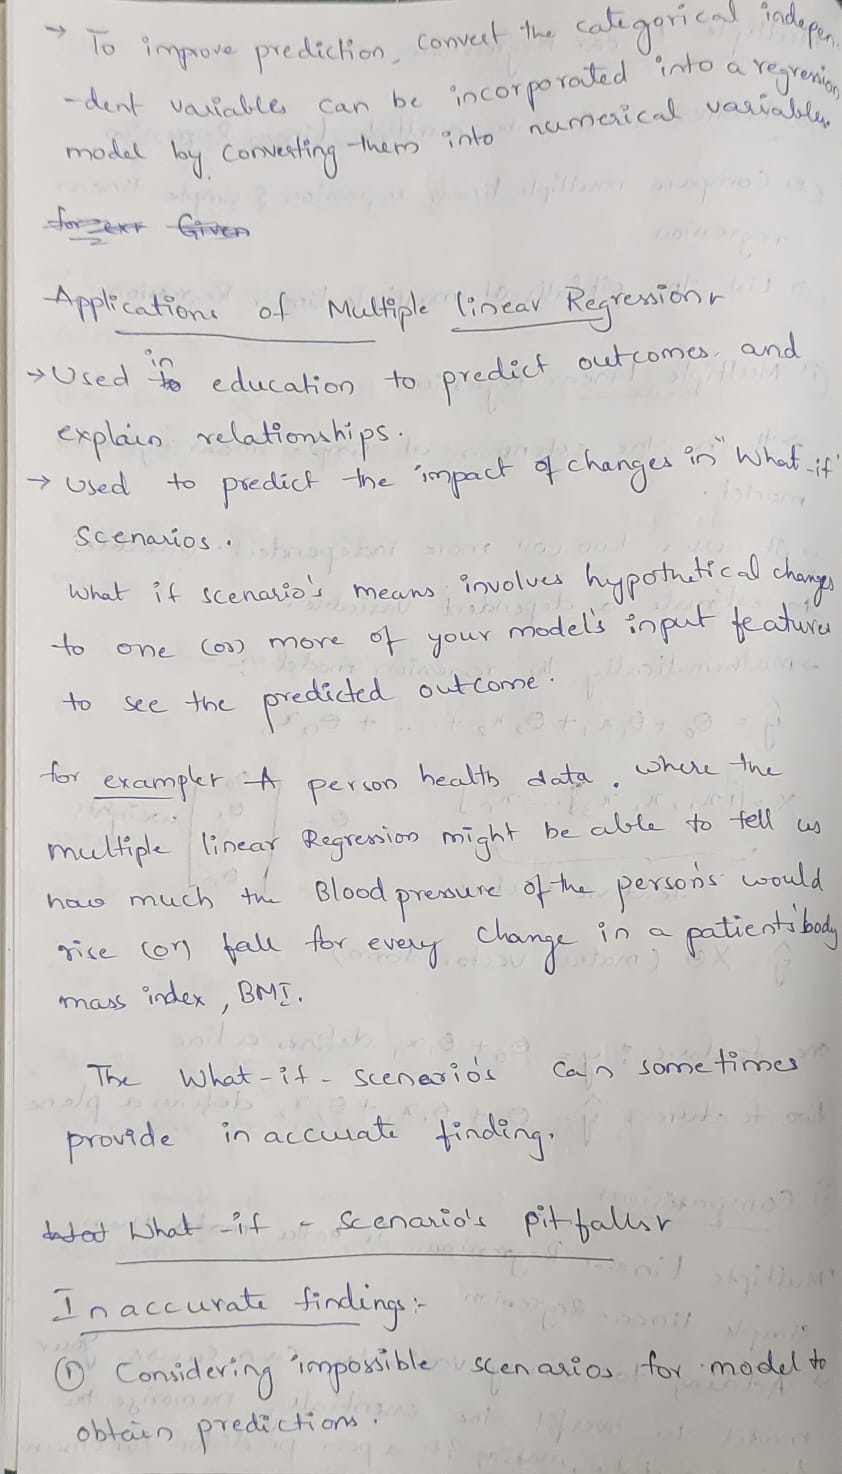 → To improve prediction, convert the categorical indepen
-dent variables can be incorporated into a regression
model by converting them into numerical variables.
for ex:- Given
Applications of Multiple linear Regression:-
→ Used in to education to predict outcomes and
explain relationships.
→ Used to predict the impact of changes in "What-if"
Scenarios.
What if scenario's means involves hypothetical changes
to one (or) more of your model's input features
to see the predicted outcome.
for example:- A person health data, where the
multiple linear Regression might be able to tell us
how much the Blood pressure of the person's would
rise (or) fall for every change in a patients body
mass index, BMI.
The What-if-scenario's can sometimes
provide inaccurate finding.
What-if-Scenario's pitfalls:-
Inaccurate findings:-
① Considering impossible scenarios for model to
obtain predictions.